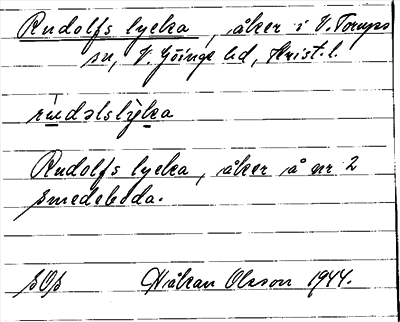 Rudolfs lycka, åker i V. Torups
sn, V. Göinge hd, Krist. l.
rúdolslỳka
Rudolfs lycka, åker å nr 2
Smedeboda.
Håkan Olsson 1944.